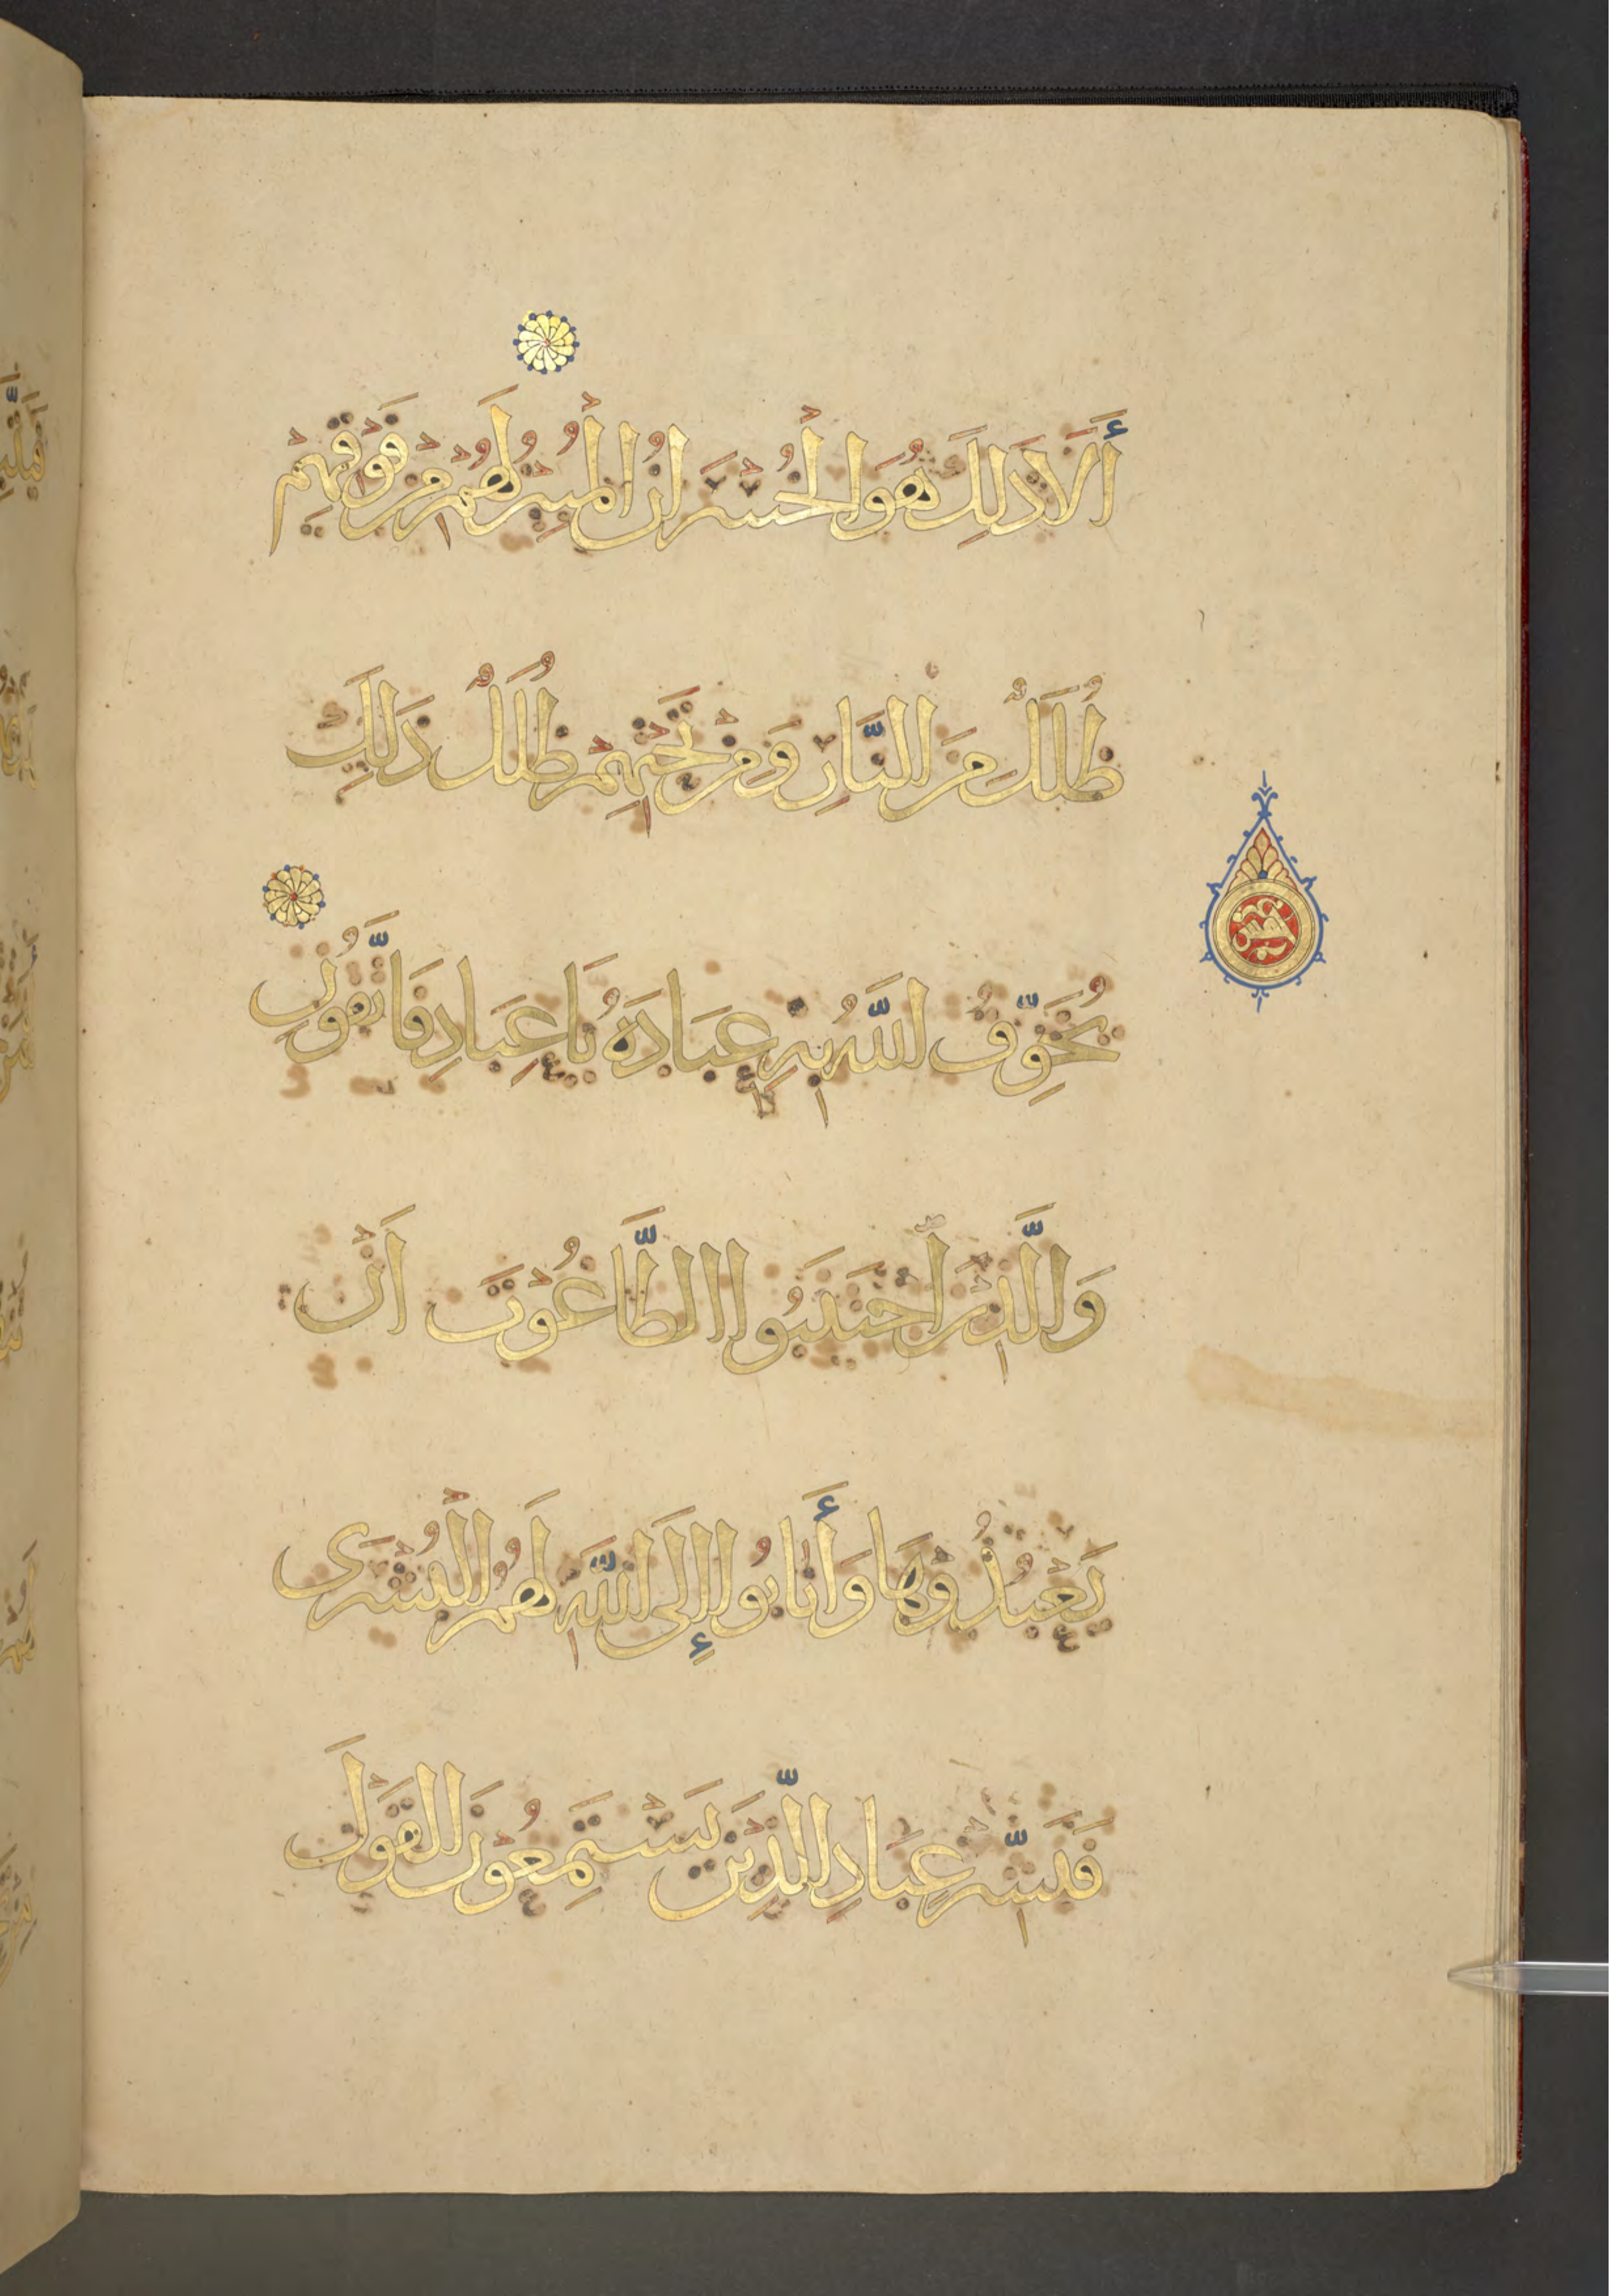 أَلَا ذَلِكَ هُوَ الْخُسْرَانُ الْمُبِينُ لَهُمْ مِنْ فَوْقِهِمْ
ظُلَلٌ مِنَ النَّارِ وَمِنْ تَحْتِهِمْ ظُلَلٌ ذَلِكَ
يُخَوِّفُ اللَّهُ بِهِ عِبَادَهُ يَاعِبَادِ فَاتَّقُونِ
وَالَّذِينَ اجْتَنَبُوا الطَّاغُوتَ أَنْ
يَعْبُدُوهَا وَأَنَابُوا إِلَى اللَّهِ لَهُمُ الْبُشْرَى
فَبَشِّرْ عِبَادِ الَّذِينَ يَسْتَمِعُونَ الْقَوْلَ